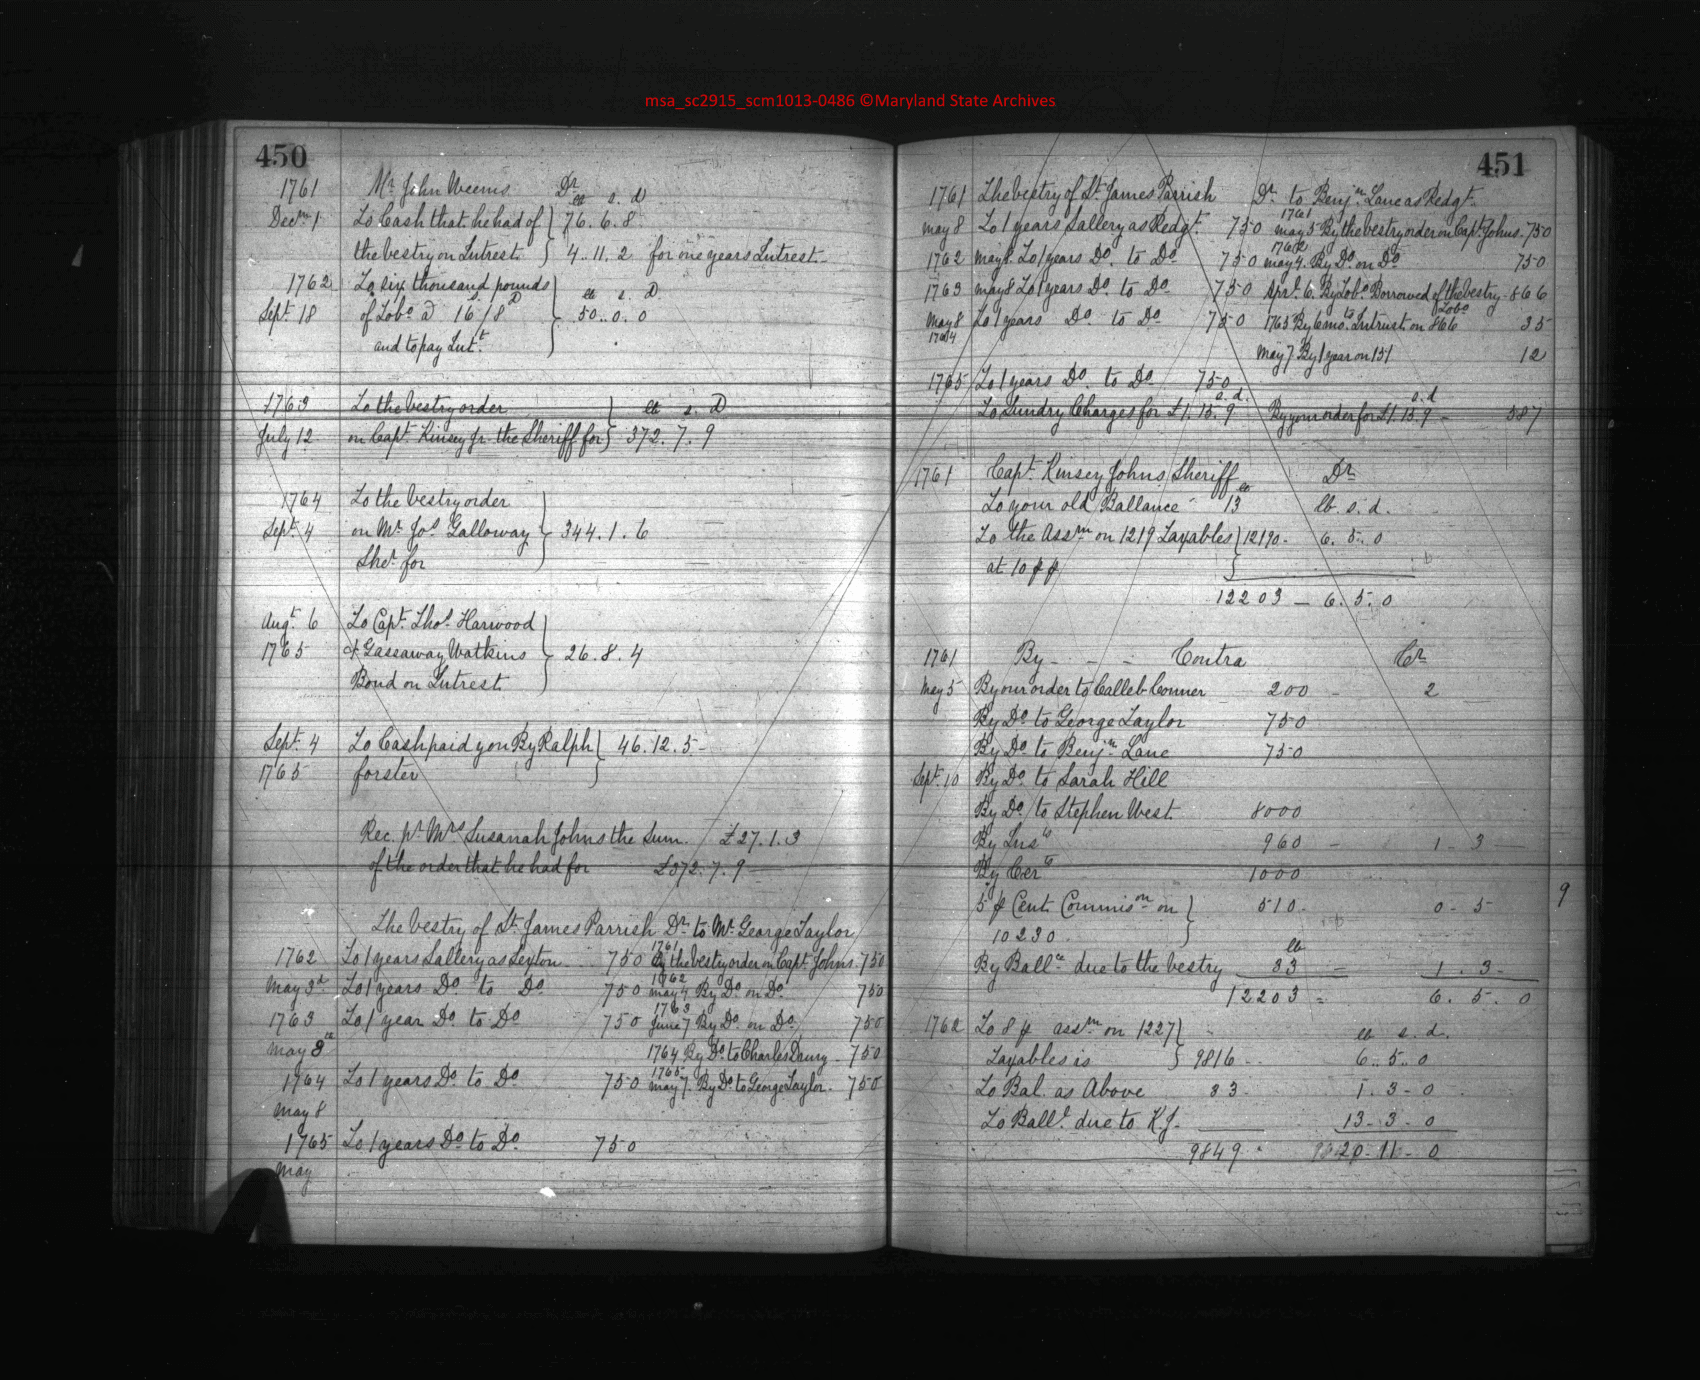 msa_sc2915_scm1013-0486 ©Maryland State Archives
450
1761 Mr. John Weems Dr
lb s. d
Decm. 1 To Cash that he had of } 76. 6. 8
the vestry on Intrest } 4. 11. 2 for one years Intrest
1762 To six thousand pounds
Sept. 18 of Tobo @ 16/8 } lb s. D 50. 0. 0
and to pay Intt.
1763 To the vestry order } lb s. D
July 12 on Capt. Kinsey Jr. the Sheriff for } 372. 7. 9
1764 To the vestry order
Sept. 4 on Mr Jos. Galloway } 344. 1. 6
Sher for
Augt. 6 To Capt. Thos. Harwood
1765 & Gassaway Watkins } 26. 8. 4
Bond on Intrest
Sept. 4 To Cash paid you By Ralph } 46. 12. 5
1765 forster
Rec. pr Mrs Susanah Johns the Sum £27. 1. 3
of the order that he had for £372. 7. 9
The vestry of St. James Parrish Dr. to Mr. George Taylor
1762 To 1 years Sallery as Sexton 750 1761 By the vestry order on Capt. Johns. 750
May 3d To 1 years Do to Do 750 1762 may 4 By Do. on Do. 750
1763 To 1 year Do to Do 750 1763 June 7 By Do. on Do. 750
May 8th 1764 By Do to Charles Drury 750
1764 To 1 years Do. to Do 750 1765 may 7. By Do to George Taylor. 750
May 8
1765 To 1 years Do to Do. 750
May
451
1761 The vestry of St. James Parrish Dr. to Benjn. Lane as Redgt.
may 8 To 1 years Sallery as Redgt. 750 1761 may 5 By the vestry order on Capt. Johns. 750
1762 may 8 To 1 years Do. to Do 750 1762 may 4. By Do. on Do 750
1763 may 8 To 1 years Do. to Do 750 Aprl. 6. By Tobo. Borrowed of the vestry 866
May 8 1764 To 1 years Do. to Do 750 1765 By 6 mo. Intrust on 866 Tobo 35
May 7 By 1 year on 151 12
1765 To 1 years Do. to Do 750
To Sundry Charges for £1. 15. 9 By your order for £1. 15. 9 587
1761 Capt. Kinsey Johns Sheriff Dr
To your old Ballance 13 lb. s. d.
To the Assm. on 1219 Taxables } 12190 - 6. 5. 0
at 10 p p
12203 - 6. 5. 0
1761 By - - - Contra Cr
May 5 By our order to Calleb Conner 200 - 2
By Do to George Taylor 750
By Do to Benjn Lane 750
Sept. 10 By Do to Sarah Hill
By Do to Stephen West. 8000
By Ins 960 - 1 - 3
By Cer 1000
5 p Cent Commison on } 510 - 0 - 5
10230
By Ball due to the vestry 33 - 1 . 3 -
12203 - 6. 5. 0
1762 To 8 p assm on 1227 } lb s. d.
Taxables is } 9816 - 6. 5. 0
To Bal. as Above 33 - 1. 3 - 0
To Ball. due to K.J. 13. 3 - 0
9849 20. 11 - 0
9